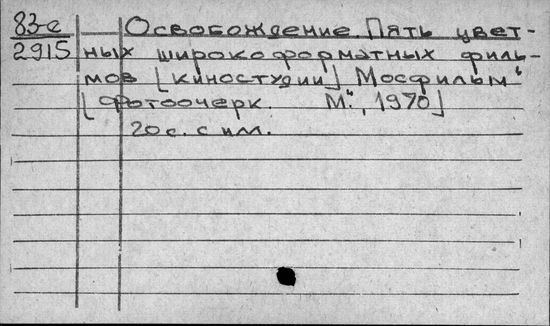 83-е
2915
Освобождение. Пять цвет-
ных широкоформатных филь-
мов [киностудии] Мосфильм"
[Фотоочерк. М.", 1970]
20 с. с илл.